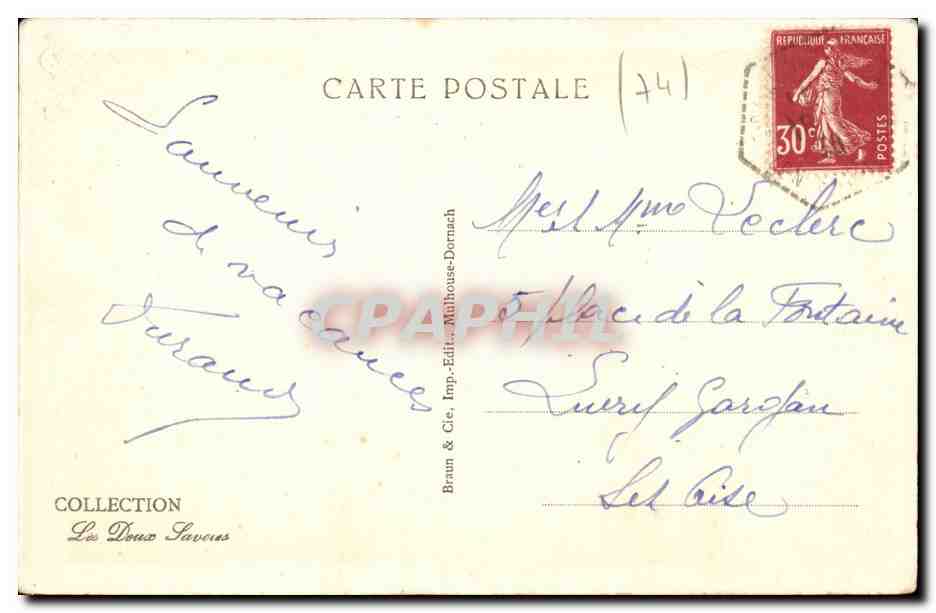 CARTE POSTALE
(74)
REPUBLIQUE FRANÇAISE
30c
POSTES
Souvenir
de vacances
Durand
Braun & Cie, Imp.-Edit., Mulhouse-Dornach
CPAPHIL
Mme Leclerc
5 place de la Fontaine
Set Oise
COLLECTION
Les Deux Savoies